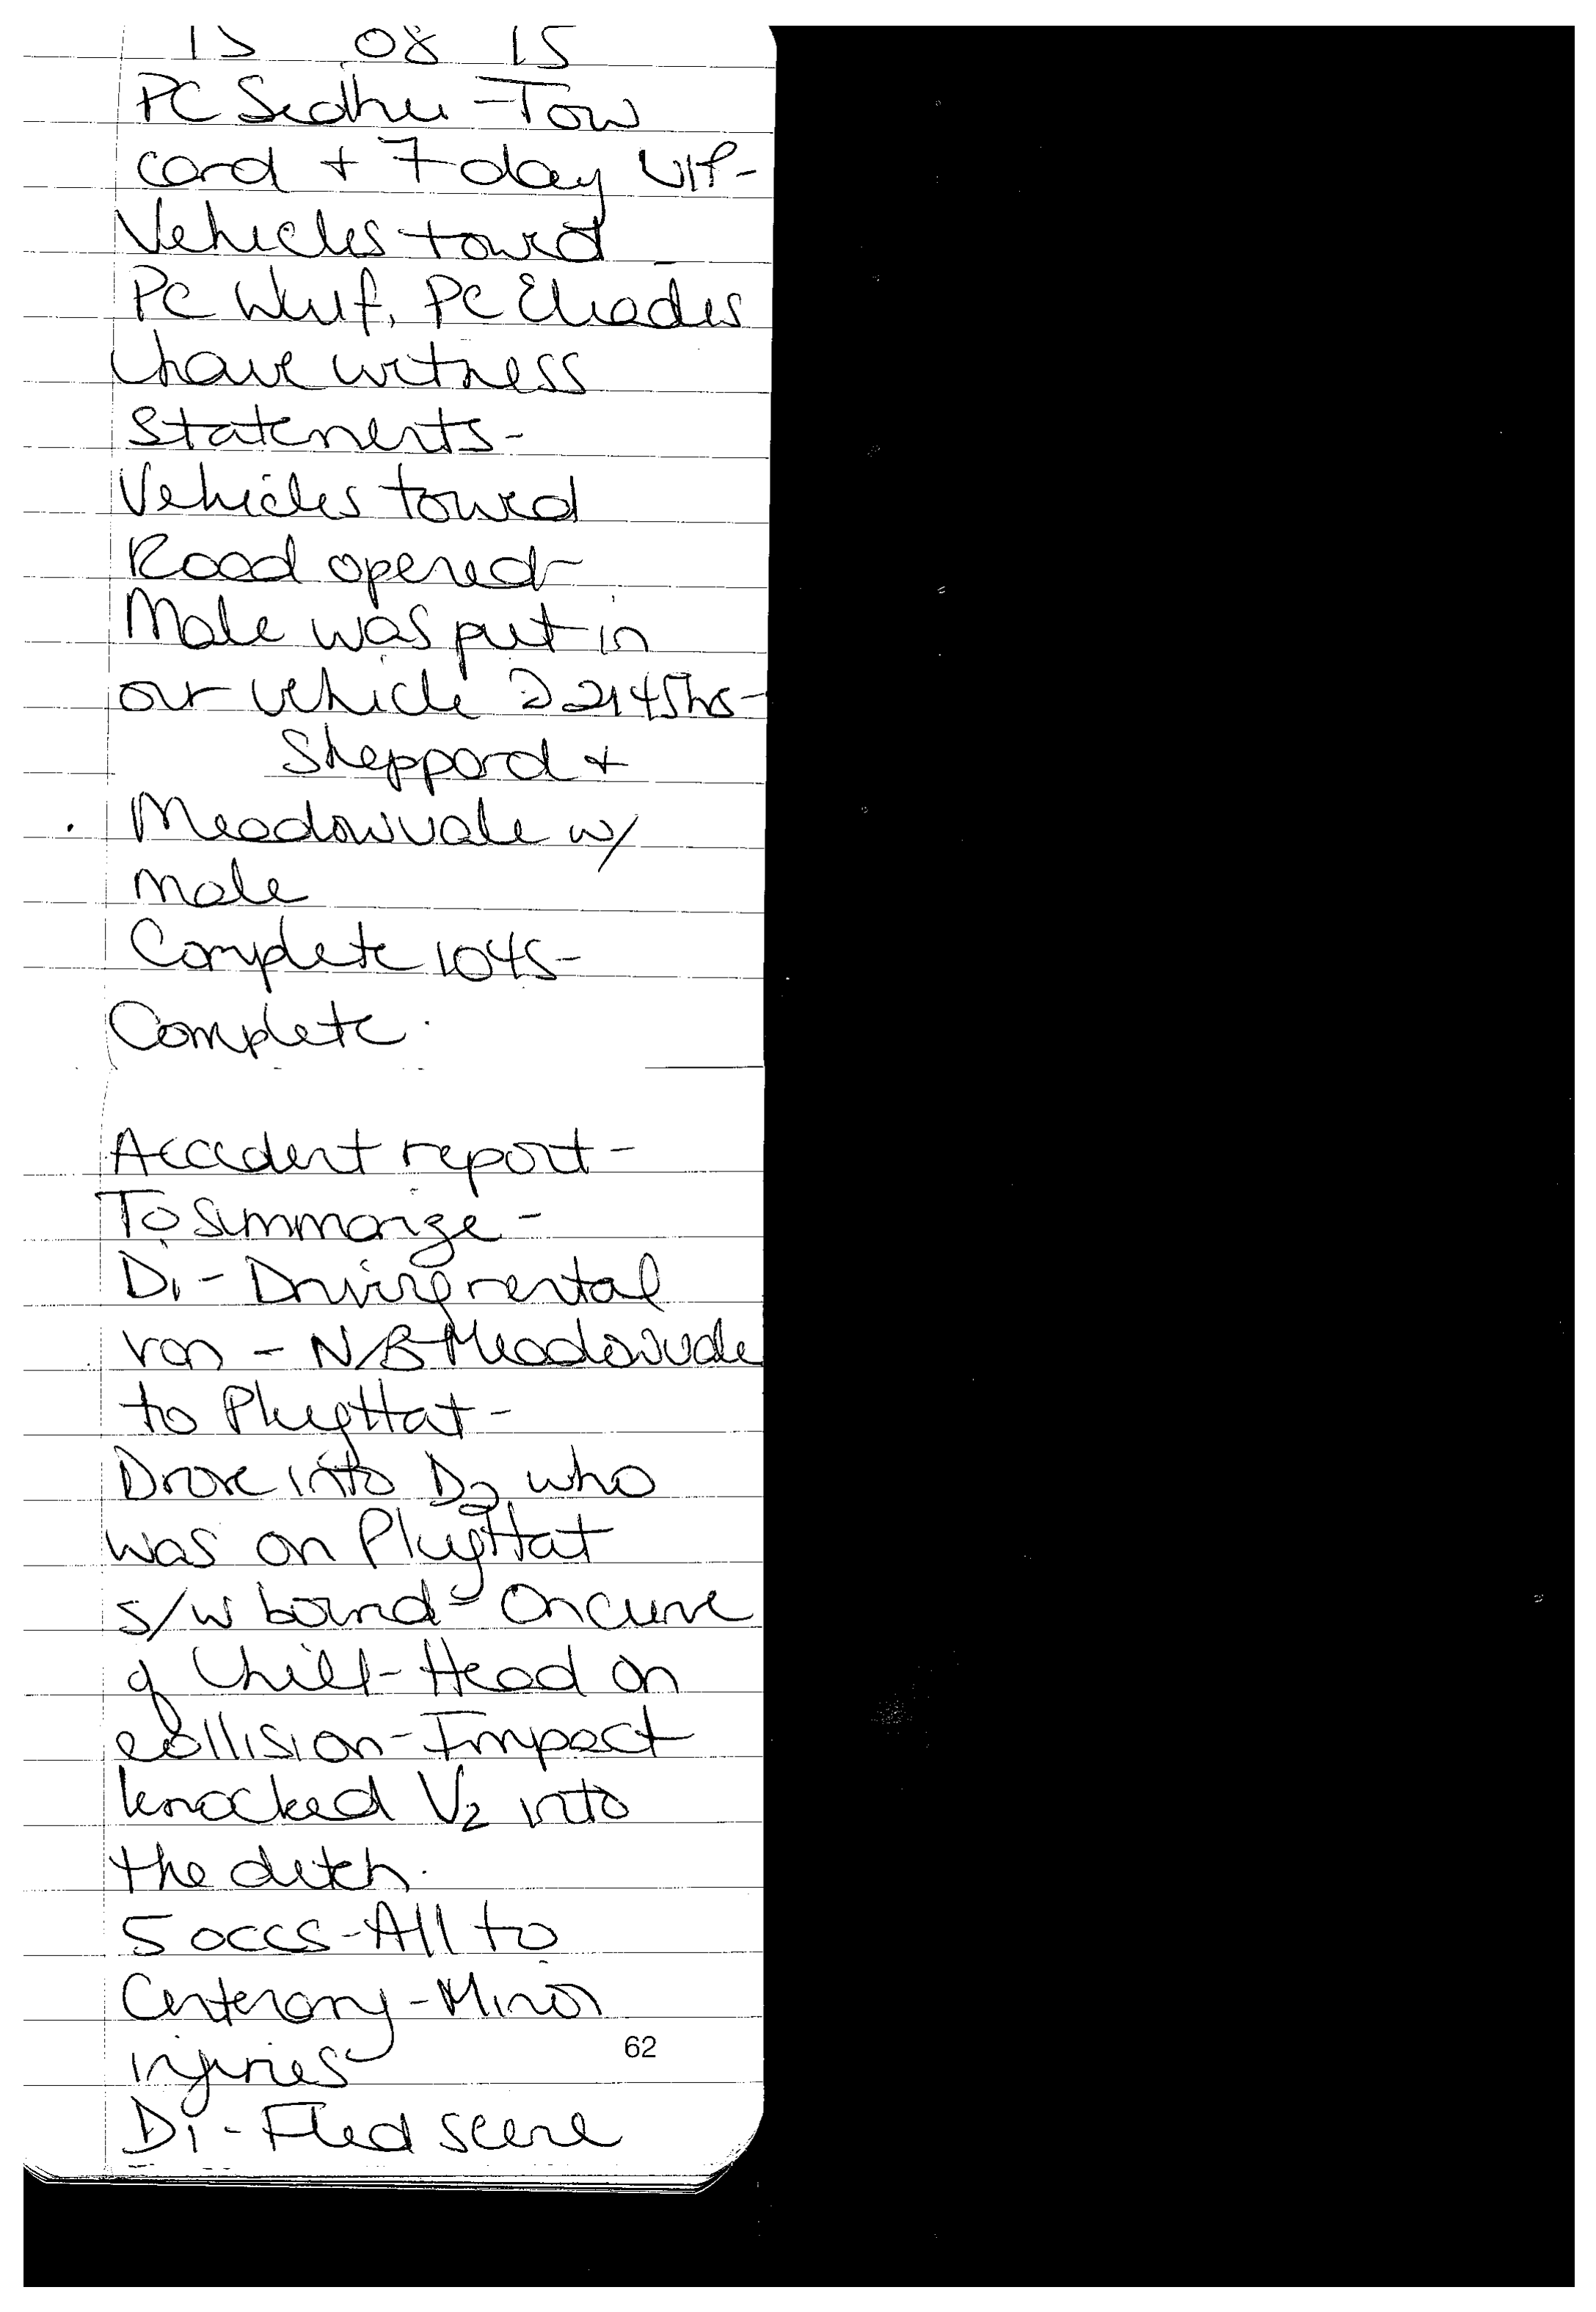 08 15
PC Sidhu - Tow
card + 7 day VIP -
Vehicles towed
PC Wulf, PC Eliades
have witness
statements -
Vehicles towed
Road opened -
Male was put in
our vehicle @ 2145hrs -
Sheppard +
Meadowvale w/
male
Complete 1045 -
Complete.
Accident report -
To summarize -
D1 - Driving rental
van - N/B Meadowvale
to Plug Hat -
Drove into D2 who
was on Plug Hat
s/w bound - On curve
of hill - Head on
collision - Impact
knocked V2 into
the ditch.
5 occs - All to
Centenary - Minor
injuries
62
D1 - Fled scene